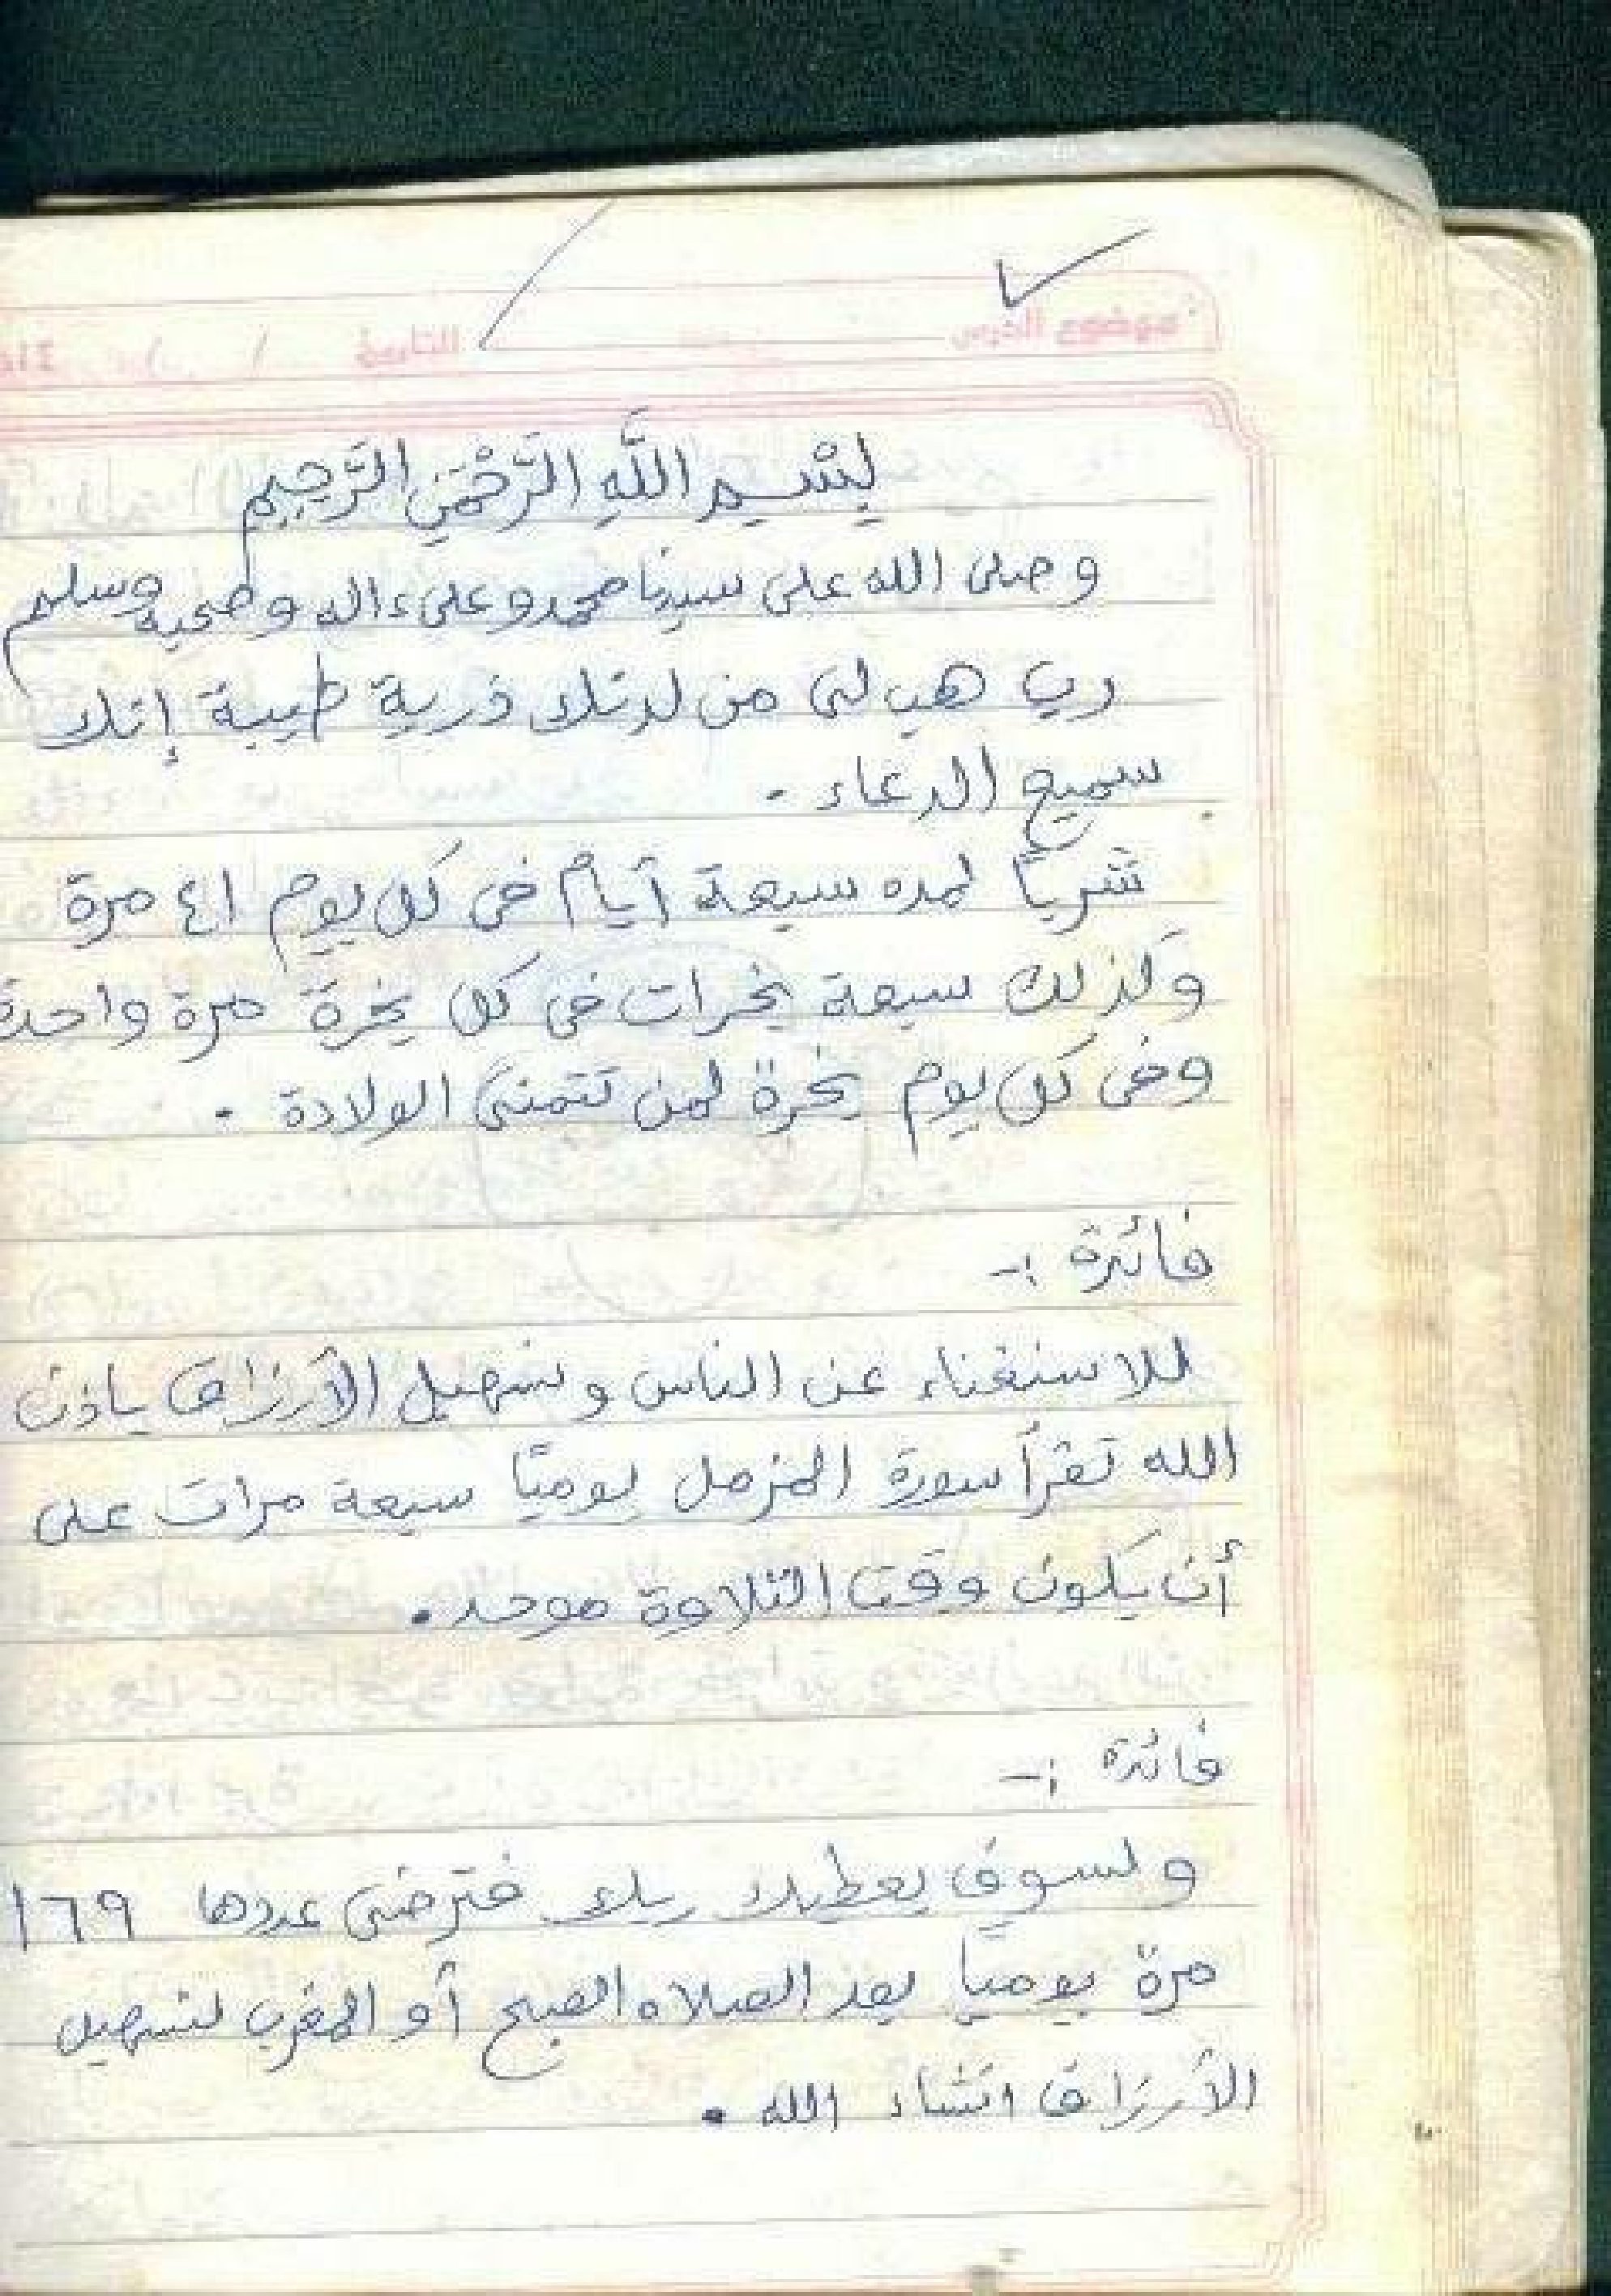 بِسْمِ اللَّهِ الرَّحْمَنِ الرَّحِيمِ
وصلى الله على سيدنا محمد وعلى ءاله وصحبه وسلم
رب هب لى من لدنك ذرية طيبة إنك
سميع الدعاء .
شرباً لمده سبعة أيام فى كل يوم ٤١ مرة
وكذلك سبعة بخرات فى كل بخرة مرة واحدة
وفى كل يوم بخرة لمن تتمنى الولادة .
فائدة :-
للاستغناء عن الناس وتسهيل الأرزاق بإذن
الله تقرأ سورة المزمل يومياً سبعة مرات على
أن يكون وقت التلاوة موحد .
فائدة :-
ولسوف يعطيك ربك فترضى عددها ١٦٩
مرة يومياً بعد الصلاه الصبح أو المغرب لتسهيل
الأرزاق انشاء الله .